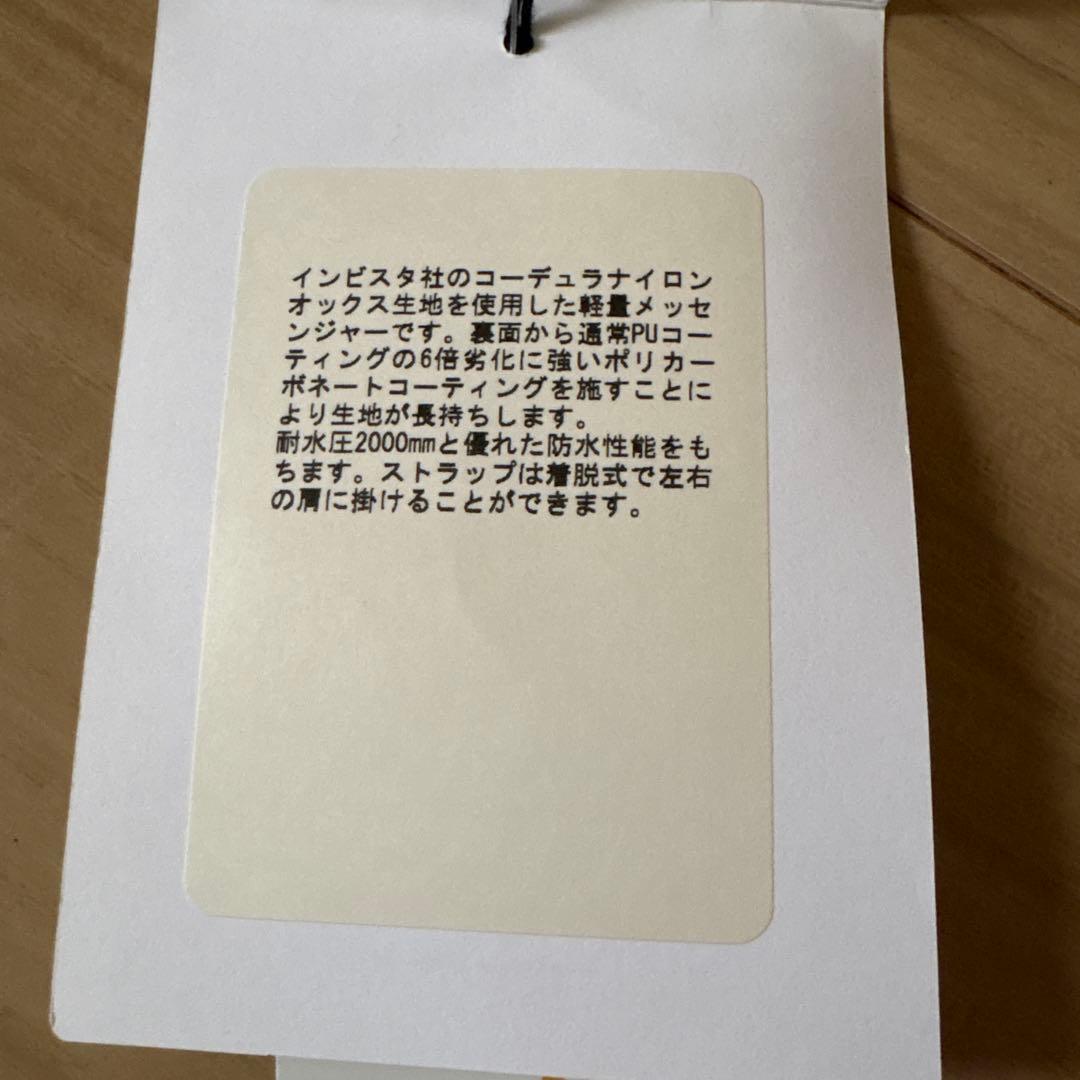 インビスタ社のコーデュラナイロン
オックス生地を使用した軽量メッセ
ンジャーです。裏面から通常PUコー
ティングの6倍劣化に強いポリカー
ボネートコーティングを施すことに
より生地が長持ちします。
耐水圧2000mmと優れた防水性能をも
ちます。ストラップは着脱式で左右
の肩に掛けることができます。